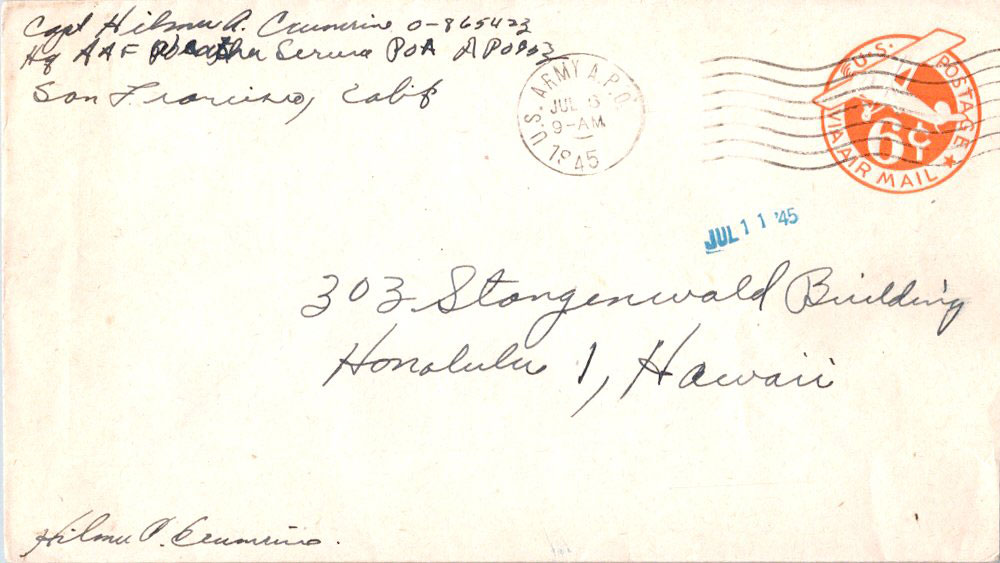 Capt Hilmer A. Crumrine O-865423
Hq AAF Weather Service POA APO 953
San Francisco, Calif
U.S. ARMY A.P.O.
JUL 6
9-AM
1945
U.S. POSTAGE
6¢
VIA AIR MAIL
JUL 11 '45
303 Stangenwald Building
Honolulu 1, Hawaii
Hilmer A. Crumrine.